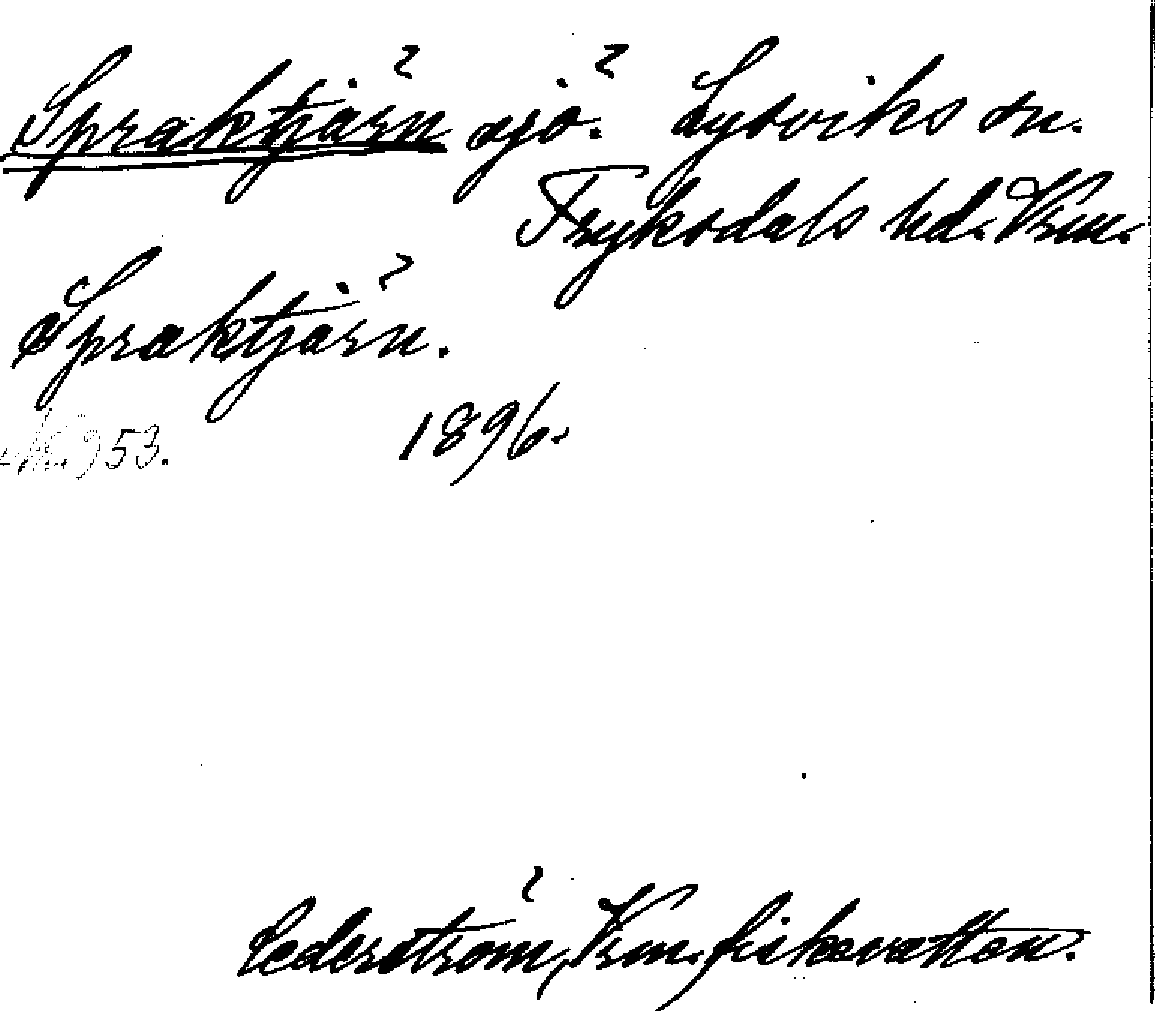 Spraktjärn sjö. Lysviks sn.
Fryksdals hd. Vrm.
Spraktjärn.
953. 1896.
Cederström, Vrm. fiskevatten.